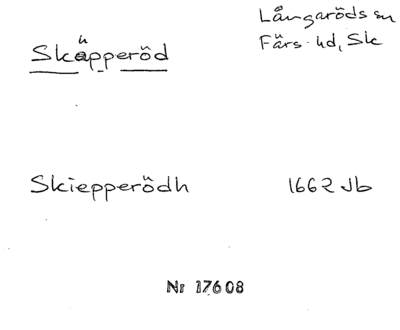 Långaröds sn
Skäpperöd
Färs hd, Sk
Skiepperödh 1662 Jb
Nr 17608